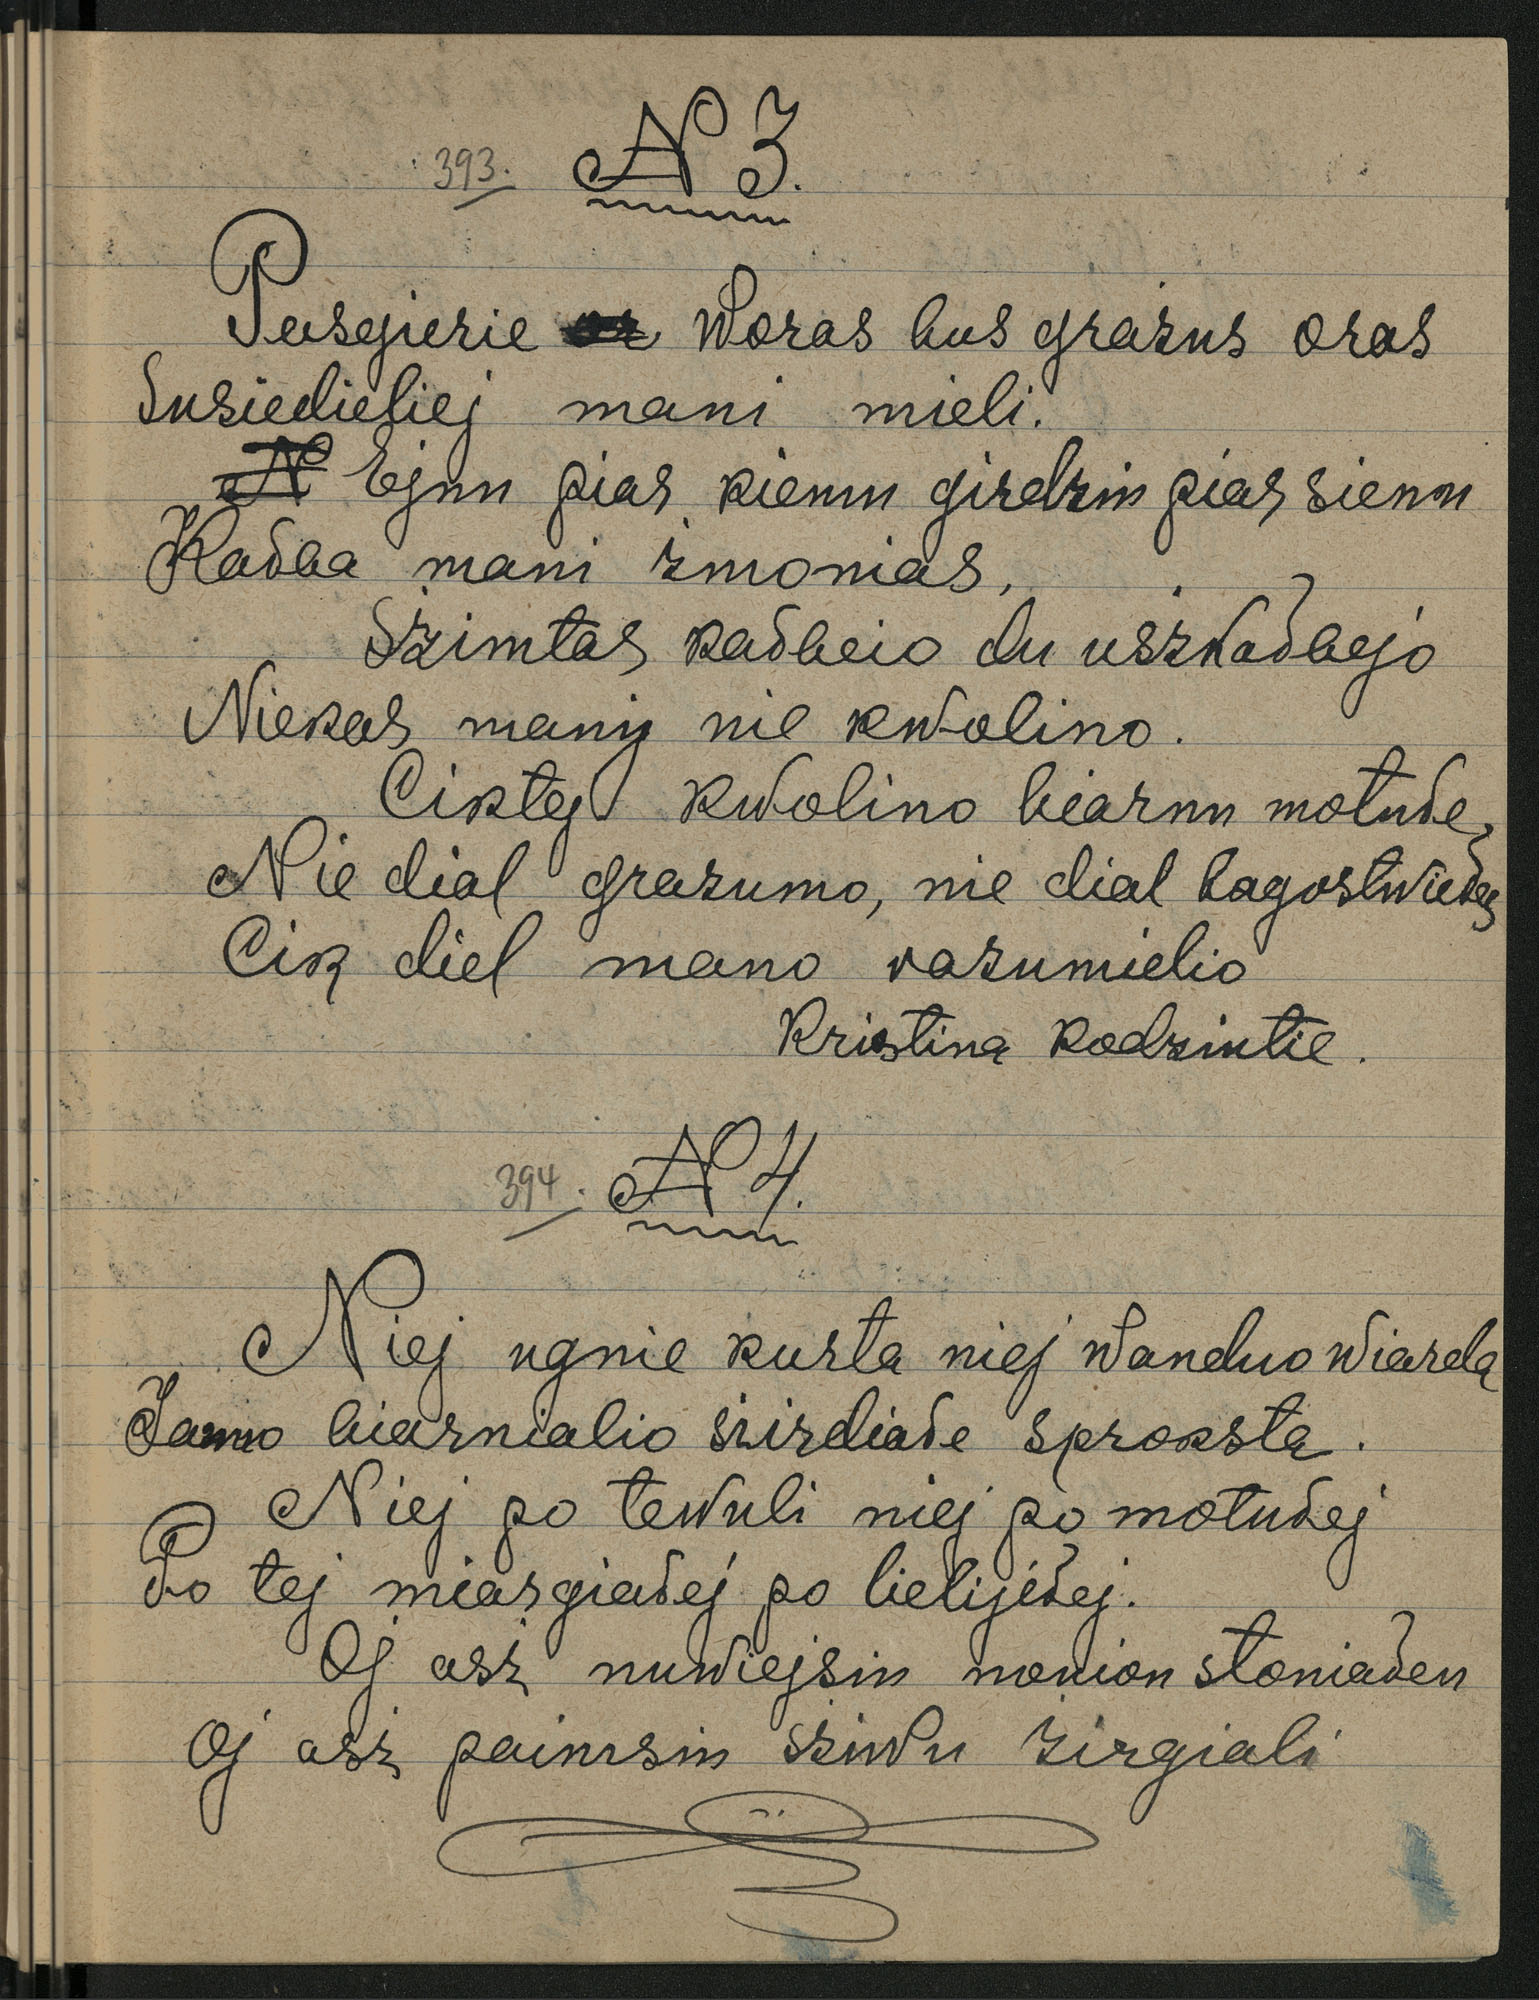 393. N 3.
Pasgierie woras bus grażus oras
Susiedieliej mani mieli.
Ejnu pias kiemu girdziu pias sienu
Kadba mani żmonias,
Szimtas kadbeio du uszkadbejo
Niekas maniy nie kwolino.
Ciktej kwolino biarnu motude,
Nie dial grażumo, nie dial bagostwiedes
Cik diel mano razumielio
Kristina Kodziutie.
394. N 4.
Niej ugnie kurta niej wanduo wiarda
Jauno biarnialio szirdiade sproksta.
Niej po tewuli niej po motudej
Po tej miargiadej po lielijedej.
Oj asz nuwiejsiu nonion stoniaden
Oj asz paimsiu sziwu żirgiali